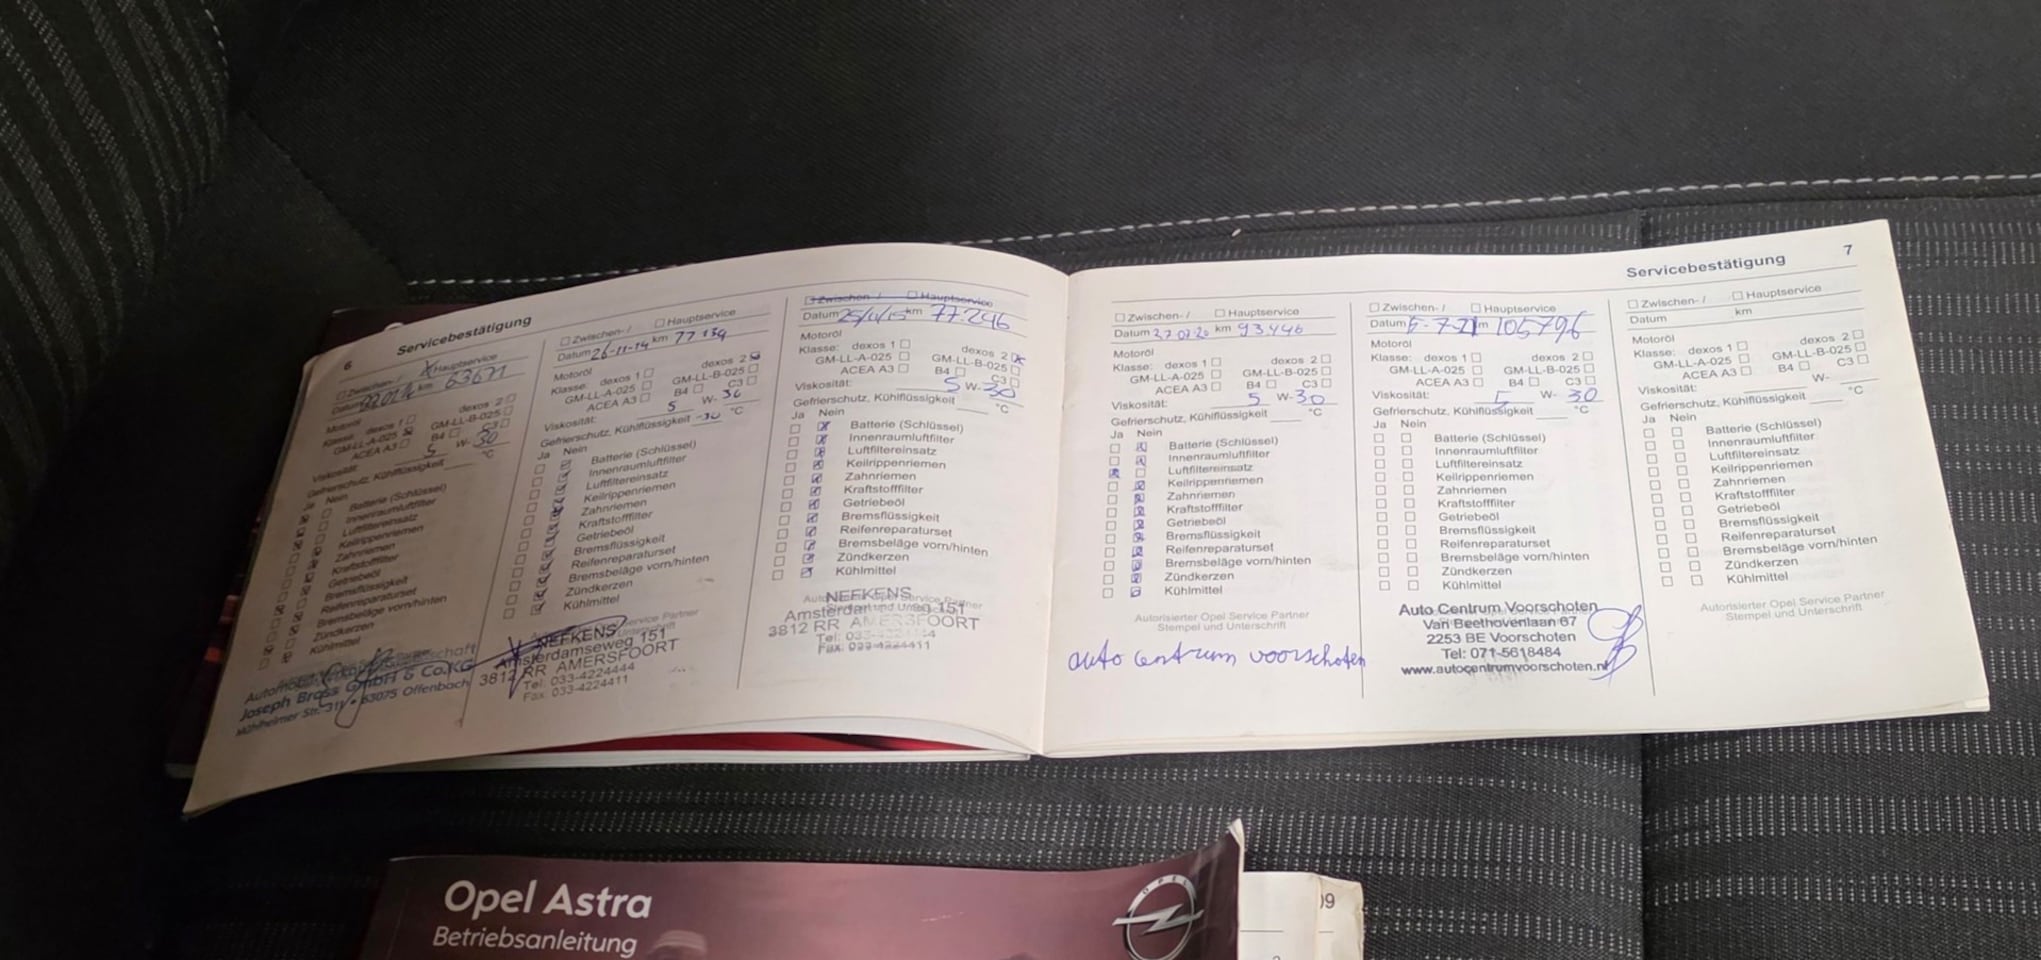 6
Servicebestätigung
Zwischen- / Hauptservice
Datum km 63671
Motoröl
Klasse: dexos 1 dexos 2
GM-LL-A-025 GM-LL-B-025
ACEA A3 B4 C3
Viskosität: 5 W- 30
Gefrierschutz, Kühlflüssigkeit °C
Ja Nein
Batterie (Schlüssel)
Innenraumluftfilter
Luftfiltereinsatz
Keilrippenriemen
Zahnriemen
Kraftstofffilter
Getriebeöl
Bremsflüssigkeit
Reifenreparaturset
Bremsbeläge vorn/hinten
Zündkerzen
Kühlmittel
Joseph Brass GmbH & Co.KG
Mühlheimer Str. 311 • 63075 Offenbach
Zwischen- / Hauptservice
Datum 26-11-14 km 77139
Motoröl
Klasse: dexos 1 dexos 2
GM-LL-A-025 GM-LL-B-025
ACEA A3 B4 C3
Viskosität: 5 W- 30
Gefrierschutz, Kühlflüssigkeit -30 °C
Ja Nein
Batterie (Schlüssel)
Innenraumluftfilter
Luftfiltereinsatz
Keilrippenriemen
Zahnriemen
Kraftstofffilter
Getriebeöl
Bremsflüssigkeit
Reifenreparaturset
Bremsbeläge vorn/hinten
Zündkerzen
Kühlmittel
NEFKENS
Amsterdamseweg 151
3812 RR AMERSFOORT
Tel: 033-4224444
Fax: 033-4224411
Zwischen- / Hauptservice
Datum 25/11/15 km 77.246
Motoröl
Klasse: dexos 1 dexos 2
GM-LL-A-025 GM-LL-B-025
ACEA A3 B4 C3
Viskosität: 5 W- 30
Gefrierschutz, Kühlflüssigkeit °C
Ja Nein
Batterie (Schlüssel)
Innenraumluftfilter
Luftfiltereinsatz
Keilrippenriemen
Zahnriemen
Kraftstofffilter
Getriebeöl
Bremsflüssigkeit
Reifenreparaturset
Bremsbeläge vorn/hinten
Zündkerzen
Kühlmittel
NEFKENS
3812 RR AMERSFOORT
Fax: 033-4224411
Servicebestätigung 7
Zwischen- / Hauptservice
Datum 27 07 20 km 93446
Motoröl
Klasse: dexos 1 dexos 2
GM-LL-A-025 GM-LL-B-025
ACEA A3 B4 C3
Viskosität: 5 W- 30
Gefrierschutz, Kühlflüssigkeit °C
Ja Nein
Batterie (Schlüssel)
Innenraumluftfilter
Luftfiltereinsatz
Keilrippenriemen
Zahnriemen
Kraftstofffilter
Getriebeöl
Bremsflüssigkeit
Reifenreparaturset
Bremsbeläge vorn/hinten
Zündkerzen
Kühlmittel
Autorisierter Opel Service Partner
Stempel und Unterschrift
auto centrum voorschoten
Zwischen- / Hauptservice
Datum 5-7-21 km 105796
Motoröl
Klasse: dexos 1 dexos 2
GM-LL-A-025 GM-LL-B-025
ACEA A3 B4 C3
Viskosität: 5 W- 30
Gefrierschutz, Kühlflüssigkeit °C
Ja Nein
Batterie (Schlüssel)
Innenraumluftfilter
Luftfiltereinsatz
Keilrippenriemen
Zahnriemen
Kraftstofffilter
Getriebeöl
Bremsflüssigkeit
Reifenreparaturset
Bremsbeläge vorn/hinten
Zündkerzen
Kühlmittel
Auto Centrum Voorschoten
Van Beethovenlaan 67
2253 BE Voorschoten
Tel: 071-5618484
www.autocentrumvoorschoten.nl
Zwischen- / Hauptservice
Datum km
Motoröl
Klasse: dexos 1 dexos 2
GM-LL-A-025 GM-LL-B-025
ACEA A3 B4 C3
Viskosität: W-
Gefrierschutz, Kühlflüssigkeit °C
Ja Nein
Batterie (Schlüssel)
Innenraumluftfilter
Luftfiltereinsatz
Keilrippenriemen
Zahnriemen
Kraftstofffilter
Getriebeöl
Bremsflüssigkeit
Reifenreparaturset
Bremsbeläge vorn/hinten
Zündkerzen
Kühlmittel
Autorisierter Opel Service Partner
Stempel und Unterschrift
Opel Astra
Betriebsanleitung
OPEL